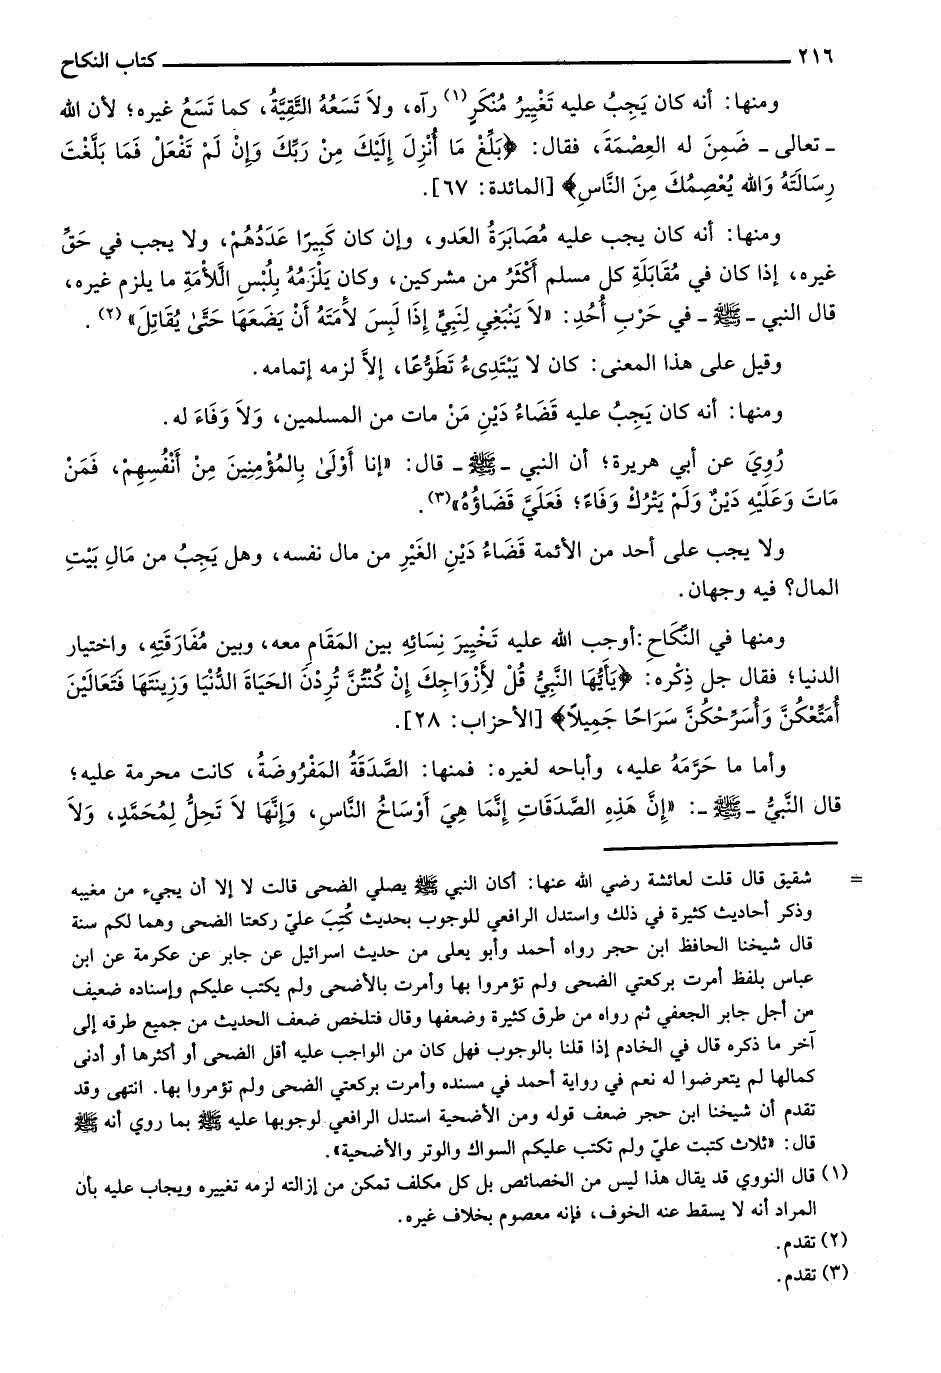 ٢١٦ كتاب النكاح
ومنها: أنه كان يَجِبُ عليه تَغْيِيرُ مُنْكَرٍ(١) رآه، ولاَ تَسَعُهُ التَّقِيَّةُ، كما تَسَعُ غيره؛ لأن الله
ـ تعالى ـ ضَمِنَ له العِصْمَةَ، فقال: ﴿بَلِّغْ مَا أُنْزِلَ إِلَيْكَ مِنْ رَبِّكَ وَإِنْ لَمْ تَفْعَلْ فَمَا بَلَّغْتَ
رِسَالَتَهُ وَالله يُعْصِمُكَ مِنَ النَّاسِ﴾ [المائدة: ٦٧].
ومنها: أنه كان يجب عليه مُصَابَرَةُ العَدو، وإن كان كَبِيرًا عَدَدُهُمْ، ولا يجب في حَقِّ
غيره، إذا كان في مُقَابَلَةِ كل مسلم أَكْثَرُ من مشركين، وكان يَلْزَمُهُ بِلُبْسِ اللَّأمَةِ ما يلزم غيره،
قال النبي ـ ﷺ ـ في حَرْبِ أُحُدِ: «لاَ يَنْبَغِي لِنَبِيٍّ إِذَا لَبِسَ لأَمَتَهُ أَنْ يَضَعَهَا حَتَّىٰ يُقَاتِلَ» (٢).
وقيل على هذا المعنى: كان لا يَبْتَدِىءُ تَطَوُّعًا، إلاَّ لزمه إتمامه.
ومنها: أنه كان يَجِبُ عليه قَضَاءُ دَيْنِ مَنْ مات من المسلمين، وَلاَ وَفَاءَ له.
رُوِيَ عن أبي هريرة؛ أن النبي ـ ﷺ ـ قال: «إنا أَوْلَىٰ بِالمُؤْمِنِينَ مِنْ أَنْفُسِهِمْ، فَمَنْ
مَاتَ وَعَلَيْهِ دَيْنٌ وَلَمْ يَتْرُكْ وَفَاءً؛ فَعَلَيَّ قَضَاؤُهُ»(٣).
ولا يجب على أحد من الأئمة قَضَاءُ دَيْنِ الغَيْرِ من مال نفسه، وهل يَجِبُ من مَالِ بَيْتِ
المال؟ فيه وجهان.
ومنها في النِّكَاحِ: أوجب الله عليه تَخْيِيرَ نِسَائِهِ بين المَقَامِ معه، وبين مُفَارَقَتِهِ، واختيار
الدنيا؛ فقال جل ذِكْره: ﴿يَأَيُّهَا النَّبِيُّ قُلْ لأَزْوَاجِكَ إِنْ كُنْتُنَّ تُرِدْنَ الحَيَاةَ الدُّنْيَا وَزِينَتَهَا فَتَعَالَيْنَ
أُمَتِّعْكُنَّ وَأُسَرِّحْكُنَّ سَرَاحًا جَمِيلاً﴾ [الأحزاب: ٢٨].
وأما ما حَرَّمَهُ عليه، وأباحه لغيره: فمنها: الصَّدَقَةُ المَفْرُوضَةُ، كانت محرمة عليه؛
قال النَّبِيُّ ـ ﷺ ـ: «إِنَّ هَذِهِ الصَّدَقَاتِ إِنَّمَا هِيَ أَوْسَاخُ النَّاسِ، وَإِنَّهَا لاَ تَحِلُّ لِمُحَمَّدٍ، وَلاَ
= شقيق قال قلت لعائشة رضي الله عنها: أكان النبي ﷺ يصلي الضحى قالت لا إلا أن يجيء من مغيبه
وذكر أحاديث كثيرة في ذلك واستدل الرافعي للوجوب بحديث كُتِبَ عليّ ركعتا الضحى وهما لكم سنة
قال شيخنا الحافظ ابن حجر رواه أحمد وأبو يعلى من حديث اسرائيل عن جابر عن عكرمة عن ابن
عباس بلفظ أمرت بركعتي الضحى ولم تؤمروا بها وأمرت بالأضحى ولم يكتب عليكم وإسناده ضعيف
من أجل جابر الجعفي ثم رواه من طرق كثيرة وضعفها وقال فتلخص ضعف الحديث من جميع طرقه إلى
آخر ما ذكره قال في الخادم إذا قلنا بالوجوب فهل كان من الواجب عليه أقل الضحى أو أكثرها أو أدنى
كمالها لم يتعرضوا له نعم في رواية أحمد في مسنده وأمرت بركعتي الضحى ولم تؤمروا بها. انتهى وقد
تقدم أن شيخنا ابن حجر ضعف قوله ومن الأضحية استدل الرافعي لوجوبها عليه ﷺ بما روي أنه ﷺ
قال: «ثلاث كتبت عليّ ولم تكتب عليكم السواك والوتر والأضحية».
(١) قال النووي قد يقال هذا ليس من الخصائص بل كل مكلف تمكن من إزالته لزمه تغييره ويجاب عليه بأن
المراد أنه لا يسقط عنه الخوف، فإنه معصوم بخلاف غيره.
(٢) تقدم.
(٣) تقدم.